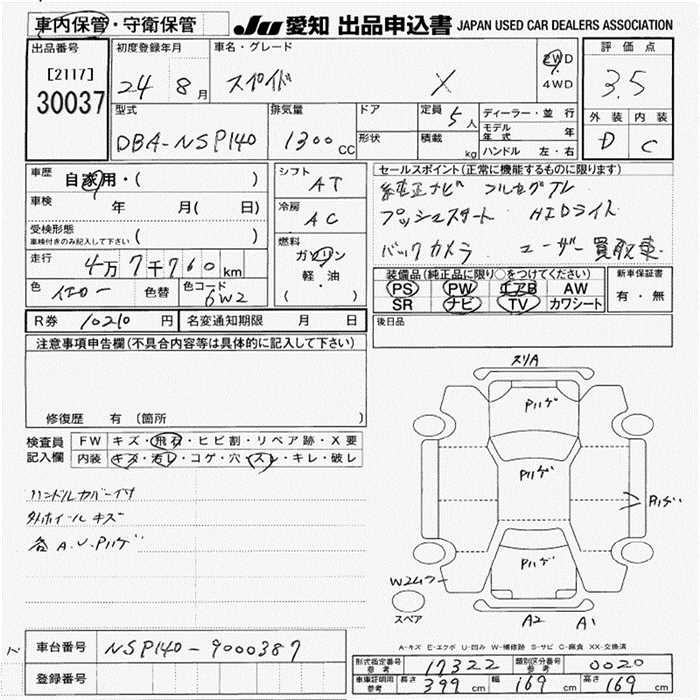 車内保管・守衛保管 JU 愛知 出品申込書 JAPAN USED CAR DEALERS ASSOCIATION
出品番号 初度登録年月 車名・グレード 2WD 評価点
[2117] 24 8月 スペイド X 4WD 3.5
30037
型式 排気量 ドア 定員 5人 ディーラー・並行 外装 内装
DBA-NSP140 1300cc 形状 積載 kg モデル年式 年 D C
ハンドル 左・右
車歴 自家用・( )
車検 年 月(日)
受検形態
車検付きのみ記入して下さい( )
走行 4万7千760km
色 イエロー 色替 色コード 6W2
シフト AT
冷房 AC
燃料 ガソリン
軽・油
( )
セールスポイント(正常に機能するものに限ります)
純正ナビ フルセグTV
プッシュスタート HIDライト
バックカメラ ユーザー買取車
装備品(純正品に限り○をつけてください) 新車保証書
PS PW エアB AW 有・無
SR ナビ TV カワシート
R券 10210円 名変通知期限 月 日 後日品
注意事項申告欄(不具合内容等は具体的に記入して下さい)
修復歴 有 〔箇所 〕
検査員 FW キズ・飛石・ヒビ割・リペア跡・X要
記入欄 内装 キズ・汚レ・コゲ・穴・スレ・キレ・破レ
ハンドルカバー付
外ホイールキズ
各A.U.Pハゲ
スリA
Pハゲ
Pハゲ
Pハゲ
Pハゲ
スペア
A2 A1
A-キズ E-エクボ U-凹み W-補修跡 S-サビ C-腐食 XX-交換済
車台番号 NSP140-9000387
登録番号
形式指定番号 参考 17322 類別区分番号 参考 0020
車庫証明用 参考 長さ 399cm 幅 169cm 高さ 169cm